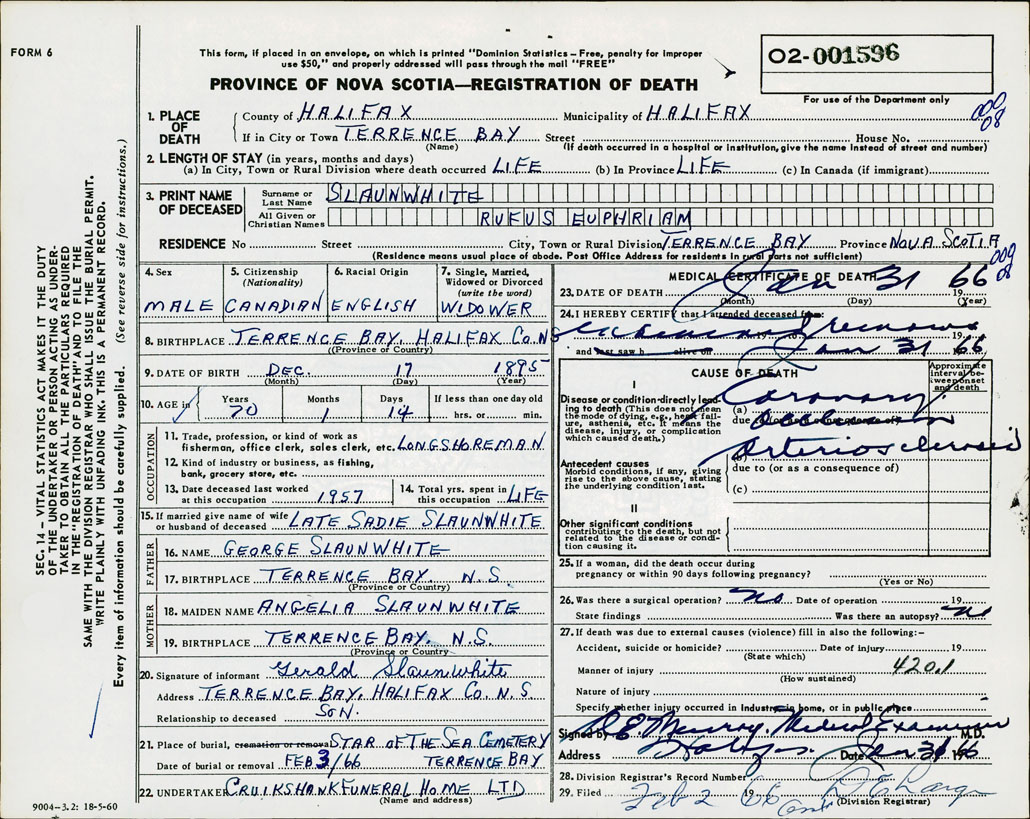 FORM 6
This form, if placed in an envelope, on which is printed "Dominion Statistics – Free, penalty for improper
use $50," and properly addressed will pass through the mail "FREE"
PROVINCE OF NOVA SCOTIA—REGISTRATION OF DEATH
02-001596
For use of the Department only
009
08
1. PLACE OF DEATH
County of HALIFAX Municipality of HALIFAX
If in City or Town TERRENCE BAY Street House No.
(Name) (If death occurred in a hospital or institution, give the name instead of street and number)
2. LENGTH OF STAY (in years, months and days)
(a) In City, Town or Rural Division where death occurred LIFE (b) In Province LIFE (c) In Canada (if immigrant)
3. PRINT NAME OF DECEASED
Surname or Last Name SLAUNWHITE
All Given or Christian Names RUFUS EUPHRIAM
RESIDENCE No Street City, Town or Rural Division TERRENCE BAY Province NOVA SCOTIA
(Residence means usual place of abode. Post Office Address for residents in rural parts not sufficient)
009
08
4. Sex
MALE
5. Citizenship (Nationality)
CANADIAN
6. Racial Origin
ENGLISH
7. Single, Married, Widowed or Divorced (write the word)
WIDOWER
8. BIRTHPLACE TERRENCE BAY, HALIFAX CO. NS
(Province or Country)
9. DATE OF BIRTH DEC. 17 1895
(Month) (Day) (Year)
10. AGE Years 70 Months 1 Days 14 If less than one day old hrs. or min.
OCCUPATION
11. Trade, profession, or kind of work as
fisherman, office clerk, sales clerk, etc. LONGSHOREMAN
12. Kind of industry or business, as fishing,
bank, grocery store, etc.
13. Date deceased last worked at this occupation 1957
14. Total yrs. spent in this occupation LIFE
15. If married give name of wife or husband of deceased LATE SADIE SLAUNWHITE
FATHER
16. NAME GEORGE SLAUNWHITE
17. BIRTHPLACE TERRENCE BAY. N.S.
(Province or Country)
MOTHER
18. MAIDEN NAME ANGELIA SLAUNWHITE
19. BIRTHPLACE TERRENCE BAY. N.S.
(Province or Country)
20. Signature of informant Gerald Slaunwhite
Address TERRENCE BAY, HALIFAX CO. N.S
Relationship to deceased SON.
21. Place of burial, cremation or removal STAR OF THE SEA CEMETERY
Date of burial or removal FEB 3/66 TERRENCE BAY
22. UNDERTAKER CRUIKSHANK FUNERAL HOME LTD
(Name and address)
MEDICAL CERTIFICATE OF DEATH
23. DATE OF DEATH Jan 31 1966
(Month) (Day) (Year)
24. I HEREBY CERTIFY that I attended deceased from
19 19
and last saw h alive on Jan 31 1966
CAUSE OF DEATH
Approximate interval between onset and death
I
Disease or condition directly leading to death (This does not mean the mode of dying, e.g., heart failure, asthenia, etc. It means the disease, injury, or complication which caused death.)
(a) Coronary
due to (or as a consequence of) Occlusion
(b) Arteriosclerosis
Antecedent causes
Morbid conditions, if any, giving rise to the above cause, stating the underlying condition last.
due to (or as a consequence of)
(c)
II
Other significant conditions
contributing to the death, but not related to the disease or condition causing it.
25. If a woman, did the death occur during
pregnancy or within 90 days following pregnancy?
(Yes or No)
26. Was there a surgical operation? no Date of operation 19
State findings Was there an autopsy? no
27. If death was due to external causes (violence) fill in also the following:–
Accident, suicide or homicide? Date of injury 19
(State which)
Manner of injury 420.1
(How sustained)
Nature of injury
Specify whether injury occurred in Industry, in home, or in public place
Signed by Murray, Medical Examiner M.D.
Address Halifax Date Jan 31 1966
28. Division Registrar's Record Number
29. Filed Feb 2 1966
(Division Registrar)
SEC. 14 – VITAL STATISTICS ACT MAKES IT THE DUTY
OF THE UNDERTAKER OR PERSON ACTING AS UNDER-
TAKER TO OBTAIN ALL THE PARTICULARS REQUIRED
IN THE "REGISTRATION OF DEATH" AND TO FILE THE
SAME WITH THE DIVISION REGISTRAR WHO SHALL ISSUE THE BURIAL PERMIT.
WRITE PLAINLY WITH UNFADING INK. THIS IS A PERMANENT RECORD.
Every item of information should be carefully supplied. (See reverse side for instructions.)
9004–3.2: 18-5-60